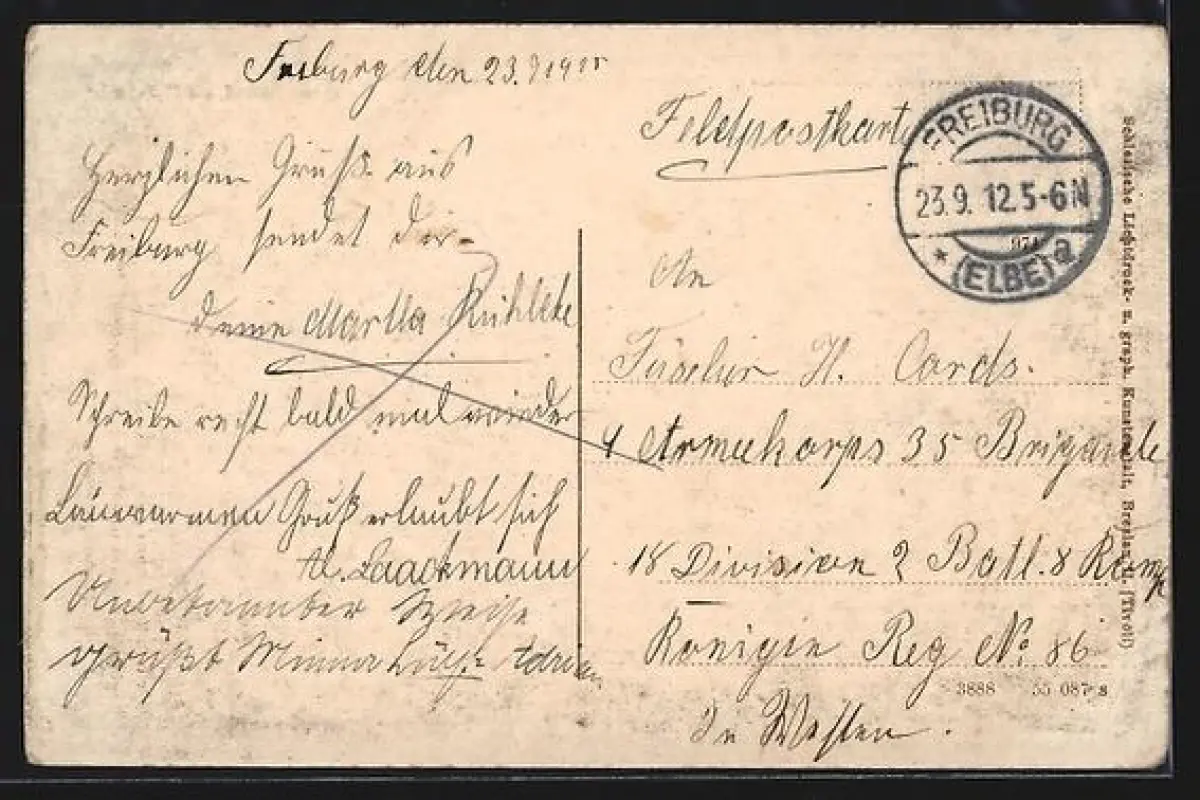 Freiburg den 23.9 1915
Herzlichen Gruß aus
Freiburg sendet dir
deine Martha
Schreibe recht bald mal wieder
Lauwarmen Gruß erlaubt sich
A. Laackmann
Unbekannter Weise
grüßt Minna
Feldpostkarte
FREIBURG
23.9. 12.5-6N
* (ELBE) a
An
Füselier H. Cords.
9 Armeekorps 35 Brigande
18 Division 2 Batl. 8 Komp
Königin Reg No. 86
In Westen.
3888 55 087 s
Schlesische Lichtdruck- u. graph. Kunstanstalt, Breslau (Tivoli)